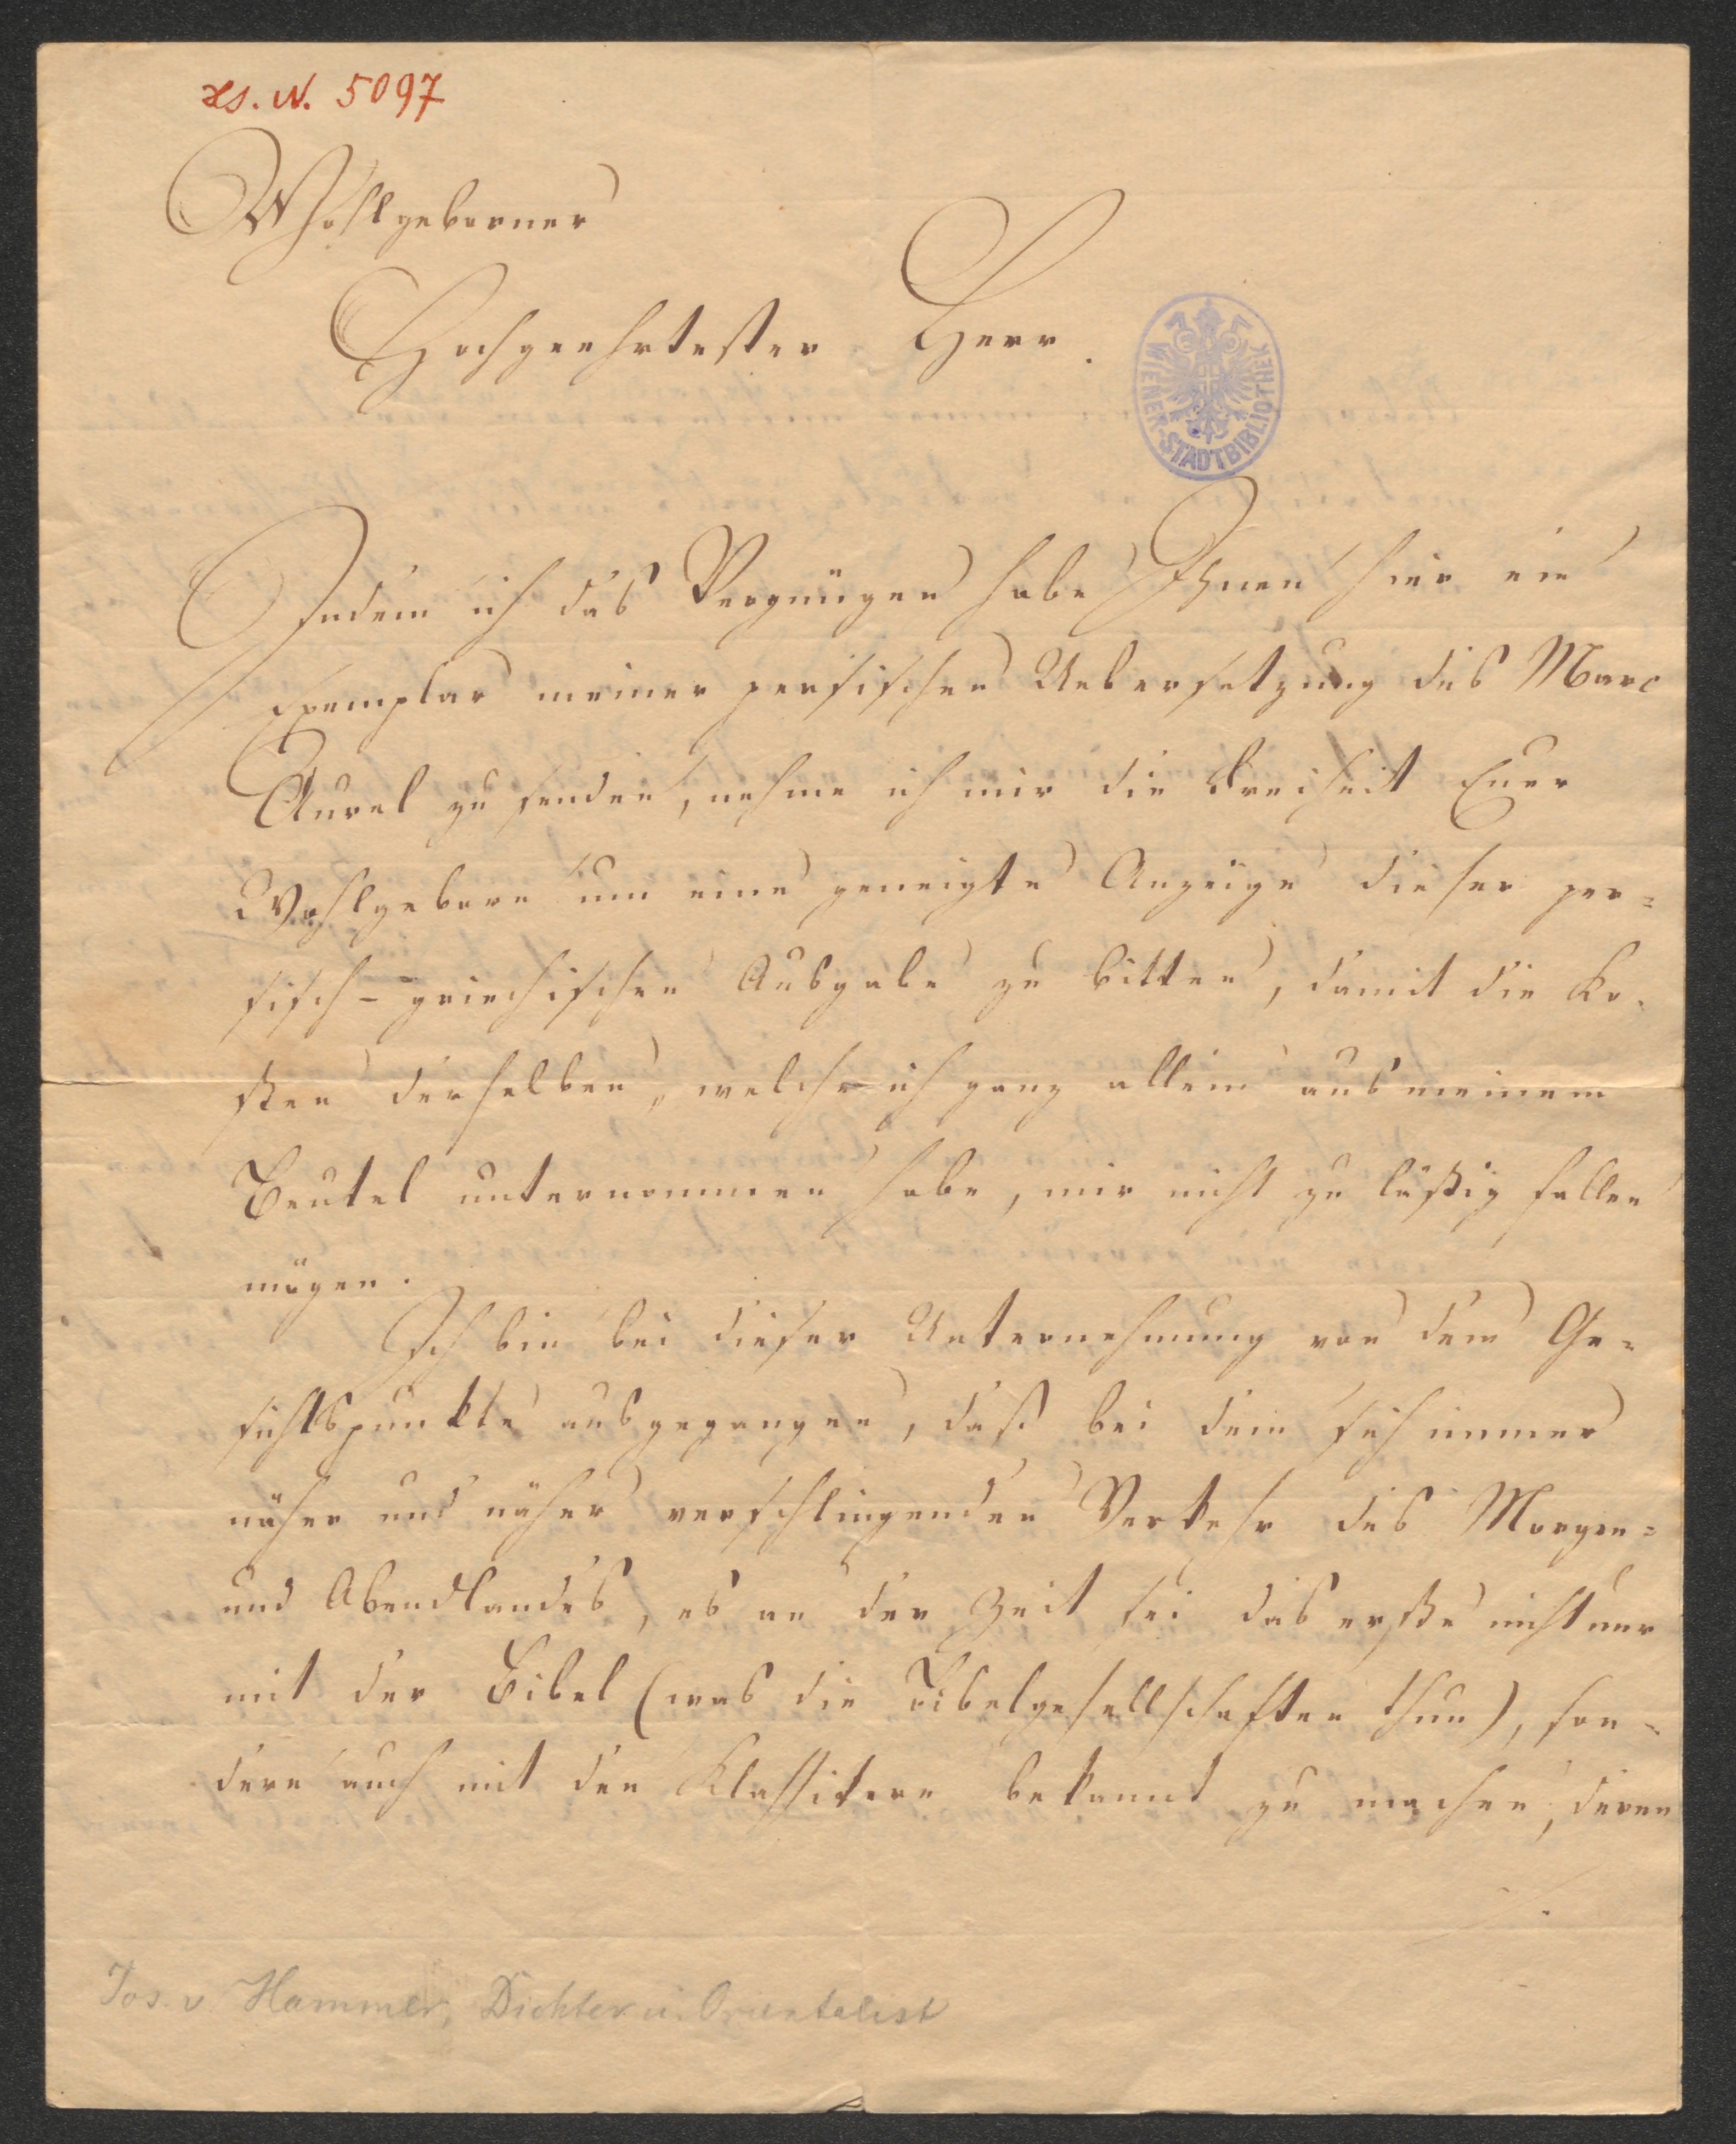 H.I.N. 5097
Wohlgeborner
Hochgeehrtester Herr.
WIENER-STADTBIBLIOTHEK
Indem ich das Vergnügen habe Ihnen hier ein
Exemplar meiner persischen Uebersetzung des Marc
Aurel zu senden, nehme ich mir die Freiheit Euer
Wohlgebern um eine geneigte Anzeige dieser per=
sisch-griechischen Ausgabe zu bitten, damit die Ko=
sten derselben, welche ich ganz allein aus meinem
Beutel unternommen habe, mir nicht zu läßig fallen
mögen.
Ich bin bei dieser Unternehmung von dem Ge=
sichtspunkte ausgegangen, daß bei dem sich immer
näher und näher verschlingenden Verkehr des Morgen=
und Abendlandes, es an der Zeit sei das erste nicht nur
mit der Bibel (was die Bibelgesellschaften thun), son=
dern auch mit den Klassikern bekannt zu machen, deren
Jos. v. Hammer, Dichter u. Orientalist